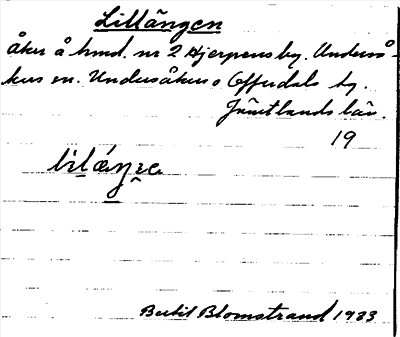 Lillängen
åker å hmd. nr 2 Hjerpens by. Underså-
kers sn. Undersåkers o Offerdals tg.
Jämtlands län.
19
Bertil Blomstrand 1933